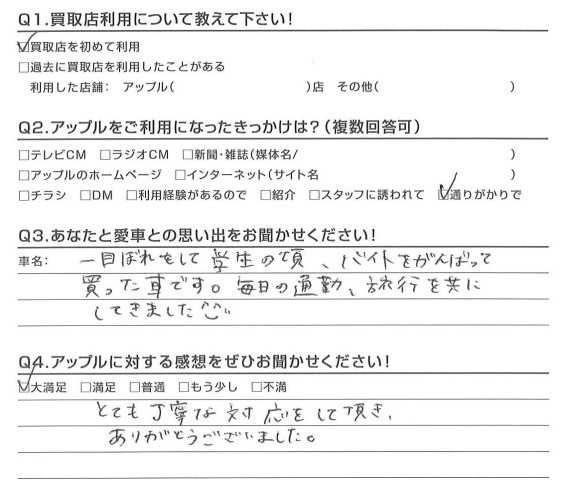 Q1.買取店利用について教えて下さい!
☑買取店を初めて利用
□過去に買取店を利用したことがある
利用した店舗： アップル( )店 その他( )
Q2.アップルをご利用になったきっかけは?(複数回答可)
□テレビCM □ラジオCM □新聞・雑誌(媒体名/ )
□アップルのホームページ □インターネット(サイト名 )
□チラシ □DM □利用経験があるので □紹介 □スタッフに誘われて ☑通りがかりで
Q3.あなたと愛車との思い出をお聞かせください!
車名： 一目ぼれをして学生の頃、バイトをがんばって
買った車です。毎日の通勤、旅行を共に
してきました
Q4.アップルに対する感想をぜひお聞かせください!
☑大満足 □満足 □普通 □もう少し □不満
とても丁寧な対応をして頂き、
ありがとうございました。